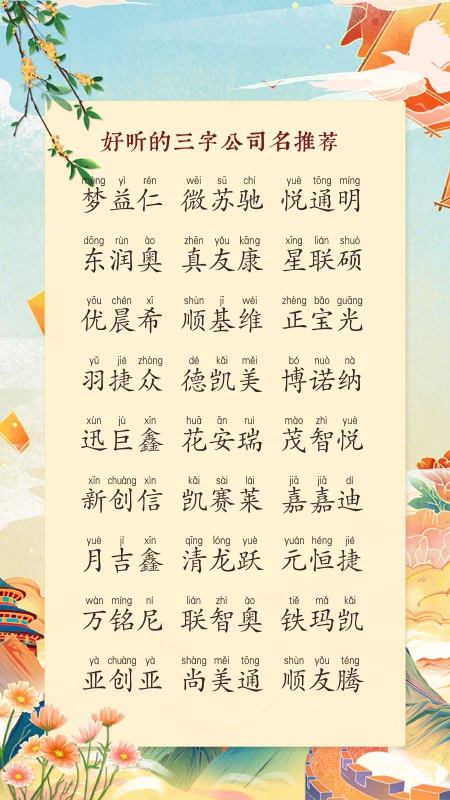 好听的三字公司名推荐
mèng yì rén wēi sū chí yuè tōng míng
梦益仁 微苏驰 悦通明
dōng rùn ào zhēn yǒu kāng xīng lián shuò
东润奥 真友康 星联硕
yōu chén xī shùn jī wéi zhèng bǎo guāng
优晨希 顺基维 正宝光
yǔ jié zhòng dé kǎi měi bó nuò nà
羽捷众 德凯美 博诺纳
xùn jù xīn huā ān ruì mào zhì yuè
迅巨鑫 花安瑞 茂智悦
xīn chuàng xìn kǎi sài lái jiā jiā dí
新创信 凯赛莱 嘉嘉迪
yuè jí xīn qīng lóng yuè yuán héng jié
月吉鑫 清龙跃 元恒捷
wàn míng ní lián zhì ào tiě mǎ kǎi
万铭尼 联智奥 铁玛凯
yà chuàng yà shàng měi tōng shùn yǒu téng
亚创亚 尚美通 顺友腾